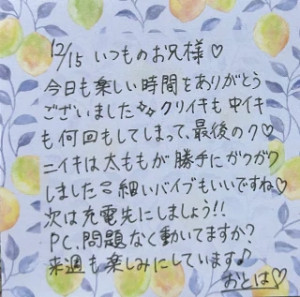 12/15 いつものお兄様♡
今日も楽しい時間をありがとう
ございました✨クリイキも中イキ
も何回もしてしまって、最後のク♡
ニイキは太ももが勝手にガクガク
しました〜細いバイブもいいですね♡
次は充電先にしましょう!!
P.C.問題なく動いてますか?
来週も楽しみにしています♪
おとは♡